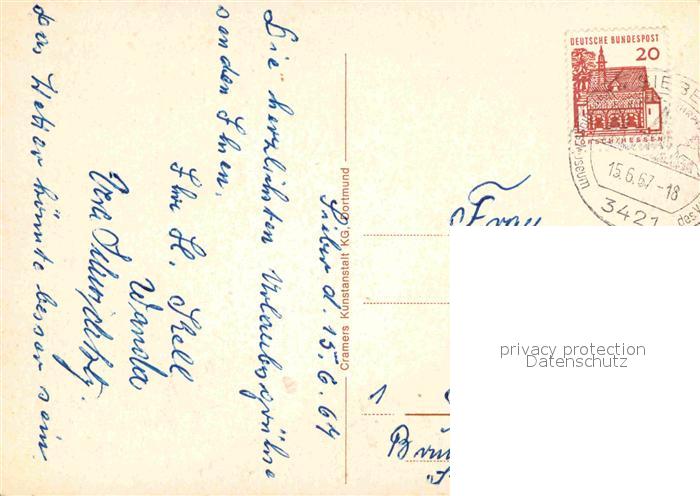 Sieber d. 15.6.67
Die herzlichsten Urlaubsgrüße
senden Ihnen,
Ihr H. Skell
Wanda
Das Wetter könnte besser sein
Cramers Kunstanstalt KG, Dortmund
DEUTSCHE BUNDESPOST
20
LORSCH/HESSEN
SIEBE
15.6.67-18
3421
Frau
1
privacy protection
Datenschutz